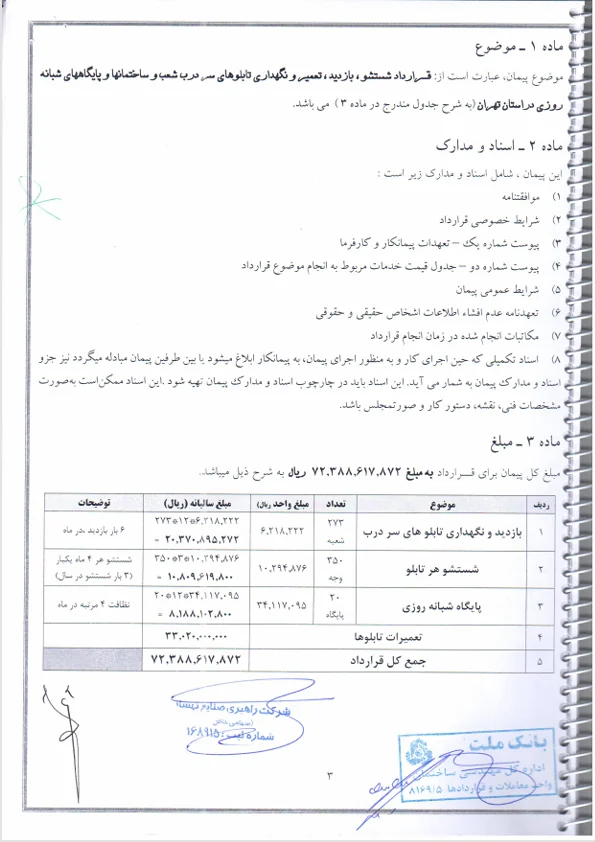 ماده ۱ ــ موضوع
موضوع پیمان، عبارت است از: قرارداد شستشو، بازدید، تعمیر و نگهداری تابلوهای سر درب شعب و ساختمانها و پایگاههای شبانه
روزی در استان تهران (به شرح جدول مندرج در ماده ۳ ) می باشد.
ماده ۲ ــ اسناد و مدارک
این پیمان ، شامل اسناد و مدارک زیر است :
۱) موافقتنامه
۲) شرایط خصوصی قرارداد
۳) پیوست شماره یک – تعهدات پیمانکار و کارفرما
۴) پیوست شماره دو – جدول قیمت خدمات مربوط به انجام موضوع قرارداد
۵) شرایط عمومی پیمان
۶) تعهدنامه عدم افشاء اطلاعات اشخاص حقیقی و حقوقی
۷) مکاتبات انجام شده در زمان انجام قرارداد
۸) اسناد تکمیلی که حین اجرای کار و به منظور اجرای پیمان، به پیمانکار ابلاغ میشود یا بین طرفین پیمان مبادله میگردد نیز جزو
اسناد و مدارک پیمان به شمار می آید. این اسناد باید در چارچوب اسناد و مدارک پیمان تهیه شود .این اسناد ممکن است به‌صورت
مشخصات فنی، نقشه، دستور کار و صورتمجلس باشد.
ماده ۳ ــ مبلغ
مبلغ کل پیمان برای قرارداد به مبلغ ۷۲،۳۸۸،۶۱۷،۸۷۲ ریال به شرح ذیل میباشد.
ردیف موضوع تعداد مبلغ واحد (ریال) مبلغ سالیانه (ریال) توضیحات
۱ بازدید و نگهداری تابلو های سر درب ۲۷۳ شعبه ۶،۲۱۸،۲۲۲ ۲۷۳*۱۲*۶،۲۱۸،۲۲۲ = ۲۰،۳۷۰،۸۹۵،۲۷۲ ۶ بار بازدید ،در ماه
۲ شستشو هر تابلو ۳۵۰ وجه ۱۰،۲۹۴،۸۷۶ ۳۵۰*۳*۱۰،۲۹۴،۸۷۶ = ۱۰،۸۰۹،۶۱۹،۸۰۰ شستشو هر ۴ ماه یکبار (۳ بار شستشو در سال)
۳ پایگاه شبانه روزی ۲۰ پایگاه ۳۴،۱۱۷،۰۹۵ ۲۰*۱۲*۳۴،۱۱۷،۰۹۵ = ۸،۱۸۸،۱۰۲،۸۰۰ نظافت ۴ مرتبه در ماه
۴ تعمیرات تابلوها ۳۳،۰۲۰،۰۰۰،۰۰۰
۵ جمع کل قرارداد ۷۲،۳۸۸،۶۱۷،۸۷۲
شرکت راهبری صنایع
(سهامی خاص)
شماره ثبت: ۱۶۸۹۱۵
بانک ملت
اداره کل مهندسی ساختمان
واحد معاملات و قراردادها ۸۱۶۹/۵
۳